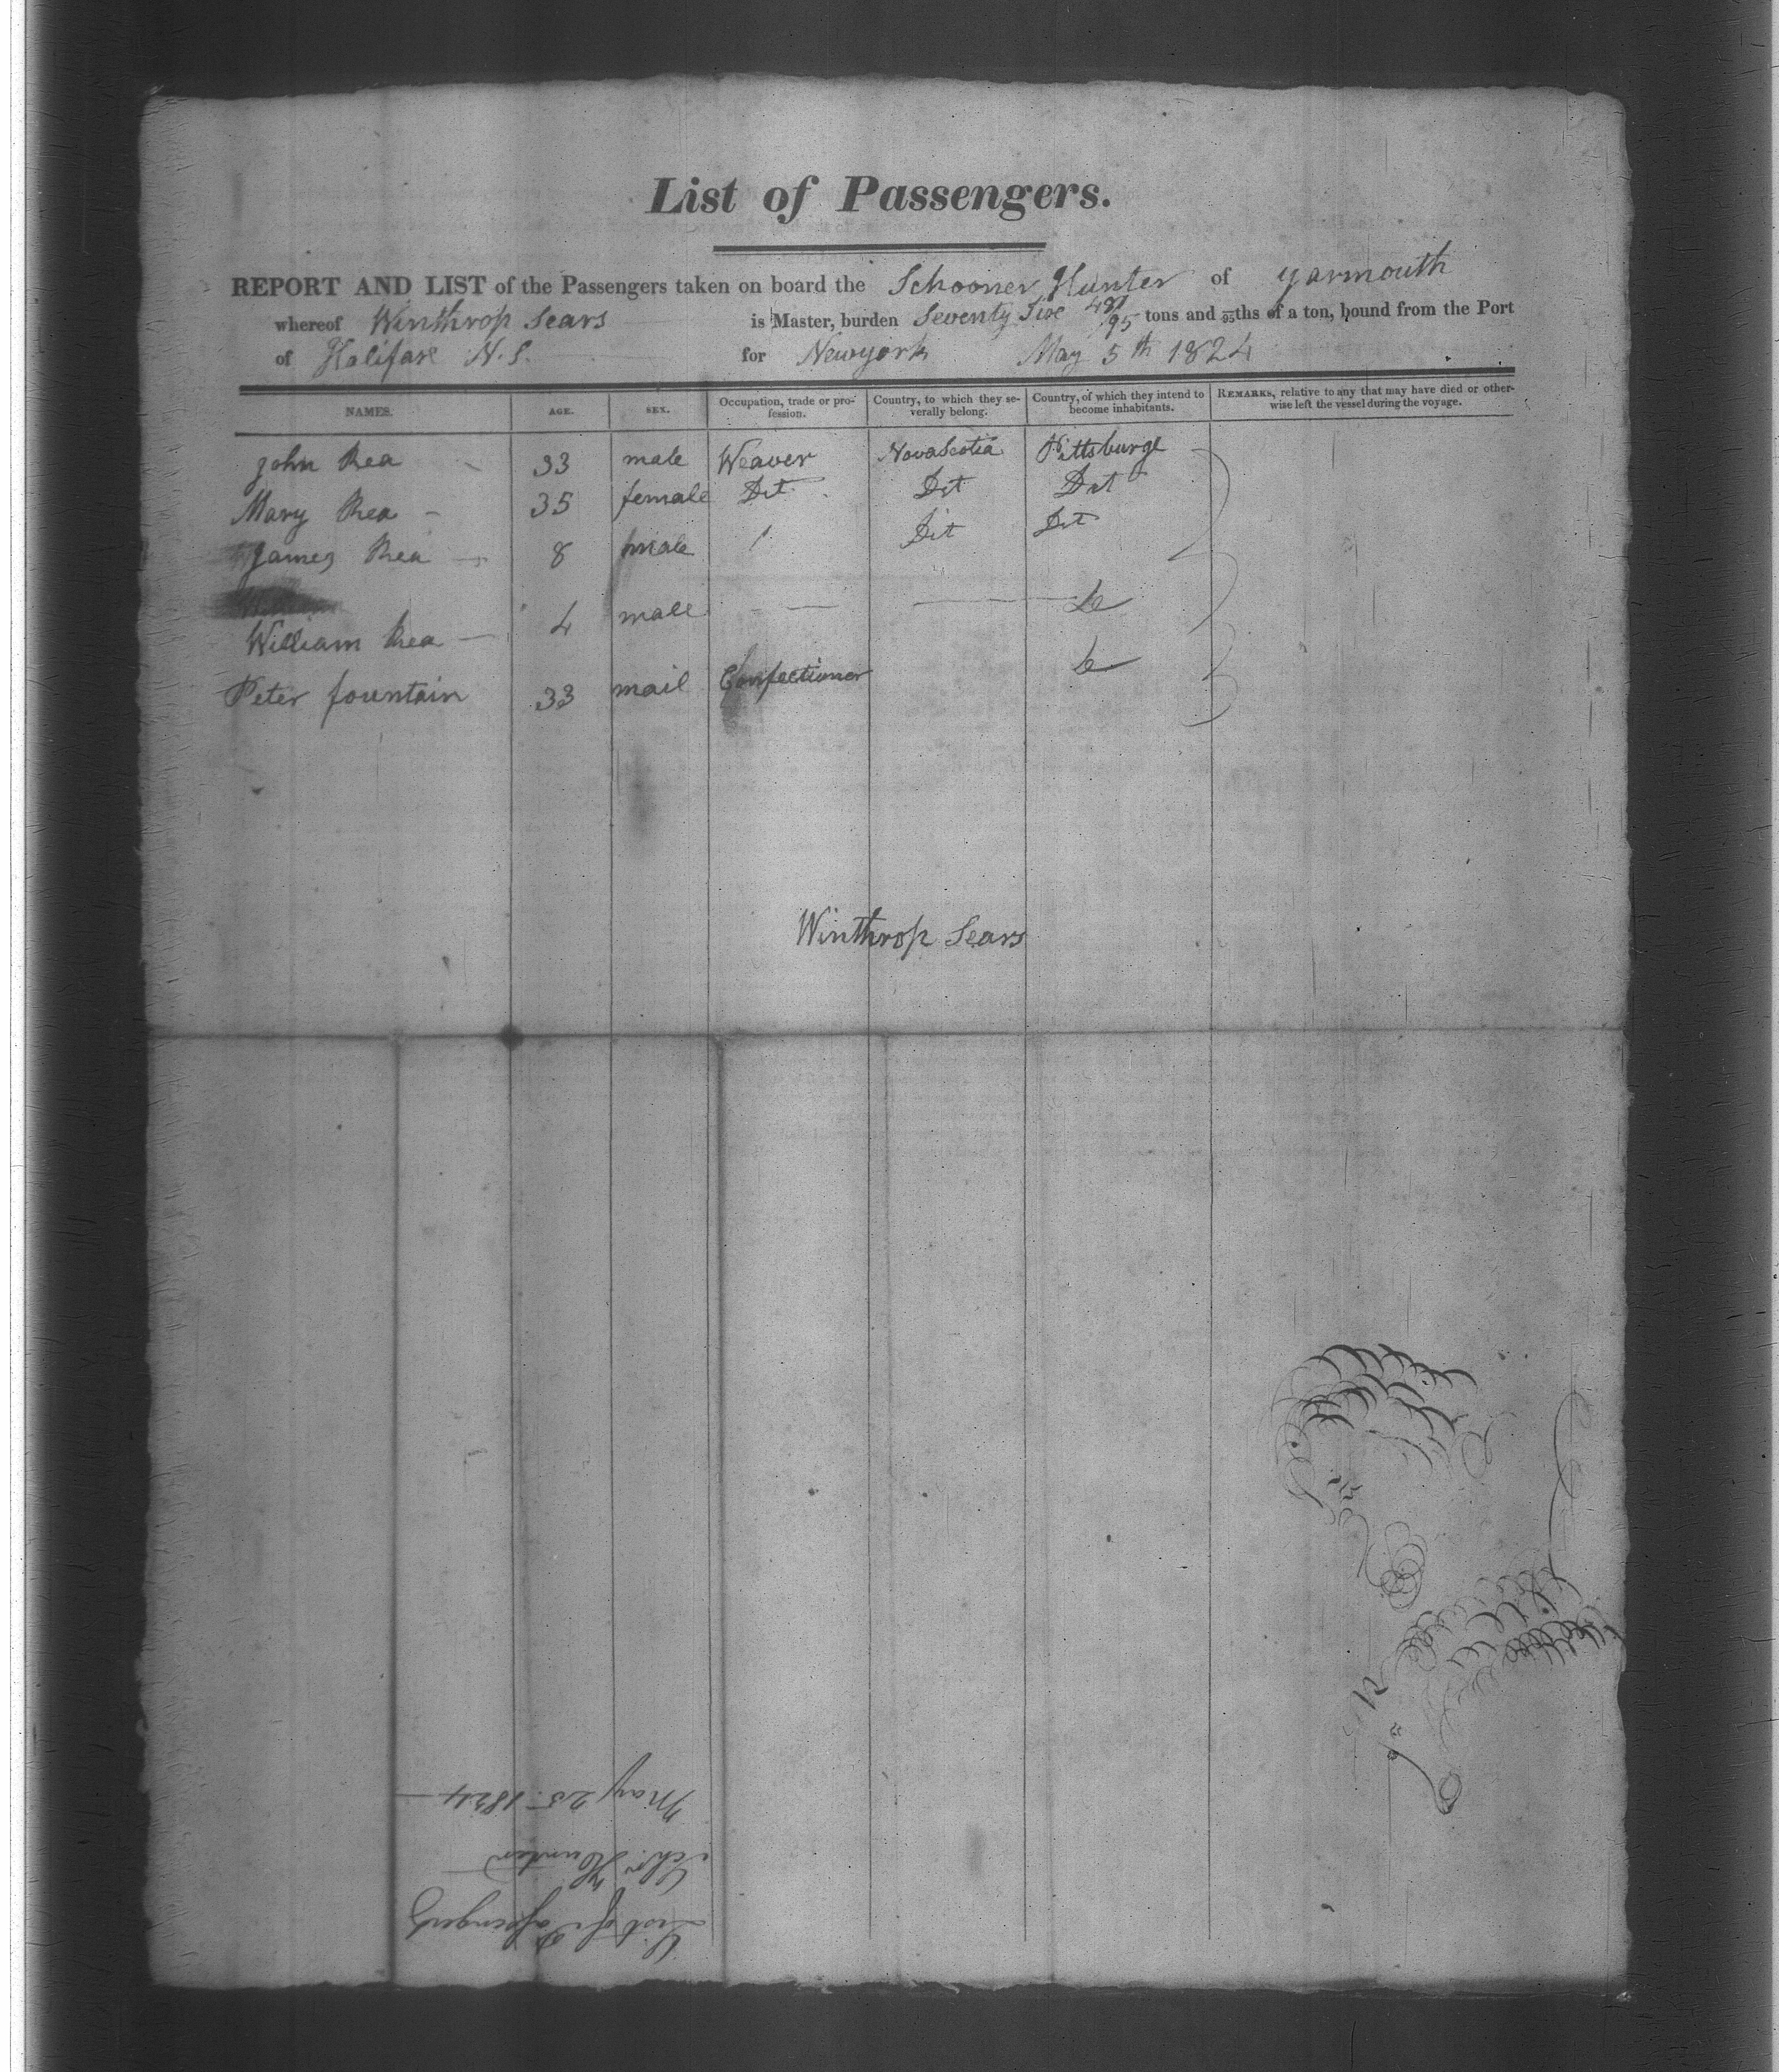 List of Passengers.
REPORT AND LIST of the Passengers taken on board the Schooner Hunter of Yarmouth
whereof Winthrop Sears is Master, burden Seventy Six 48/95 tons and 95ths of a ton, bound from the Port
of Halifax N.S. for Newyork May 5th 1824
NAMES. AGE. SEX. Occupation, trade or pro- Country, to which they se- Country, of which they intend to REMARKS, relative to any that may have died or other-
fession. verally belong. become inhabitants. wise left the vessel during the voyage.
John Rea 33 male Weaver NovaScotia Pittsburge
Mary Rea - 35 female Dit Dit Dit
James Rea - 8 male Dit Dit
William
William Rea - 4 male
Peter fountain 33 mail Confectioner
Winthrop Sears
List of Passengers
Schr. Hunter
May 25. 1824